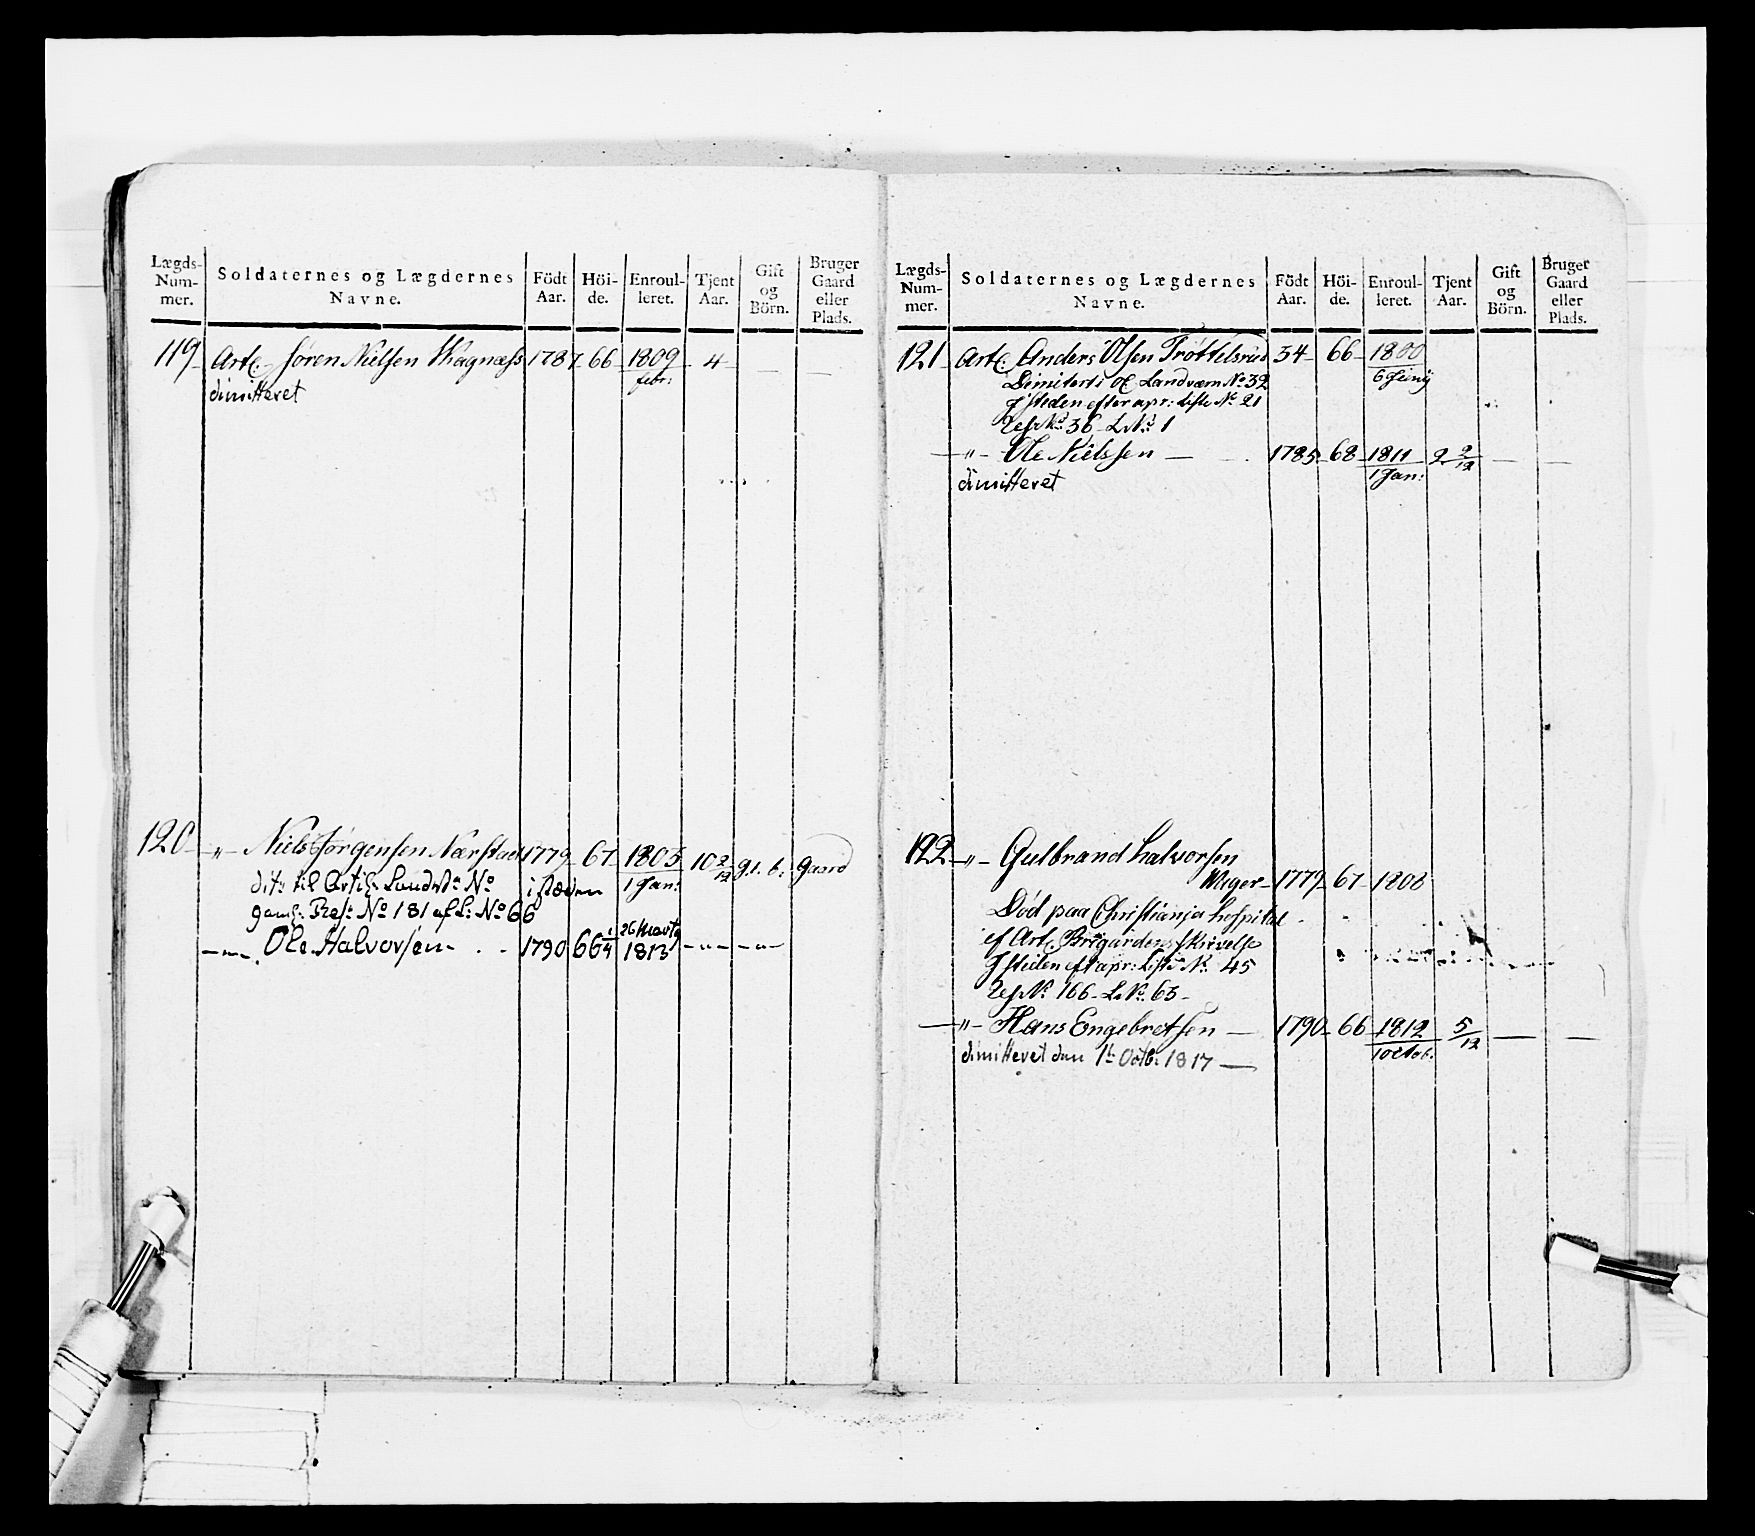 Lægds-Nummer. Soldaternes og Lægdernes Navne. Födt Aar. Höide. Enroulleret. Tjent Aar. Gift og Börn. Bruger Gaard eller Plads.
119 Artl. Sören Nielsen Kragnæss 1787 66 1809 4 — —
febr:
dimitteret
120 — " — Niels Jörgensen Nærstad 1779 67 1803 10 2/12 g. 1. b. gaard
1 Jan:
dit: til Artil: Landv: No i stæden
gaml: Res: No 181 af L: No 66
— " — Ole Halvorsen 1790 66 1/4 26 Marts 1813 — " — — " —
Lægds-Nummer. Soldaternes og Lægdernes Navne. Födt Aar. Höide. Enroulleret. Tjent Aar. Gift og Börn. Bruger Gaard eller Plads.
121 Artl. Anders Olsen Tröttelsrud 34 66 1800
6 Junij
Dimitert Landværn No 32
J steden efter apr: Liste No 21
Res No 36 L No 1
— " — Ole Nielssen — 1785 68 1811 2 2/12 — —
1 Jan:
dimitteret
122 — " — Gulbrand Halvorsen
Wager 1779 67 1808
Död paa Christianja hospital
ef Artl. Brigardens skrivelse
J steden eft apr: Liste No 45
Res No 166 L No 63
— " — Hans Engebretsen — 1790 66 1812 5/12 — —
1 octob.
dimitteret den 1t Octb: 1817 —